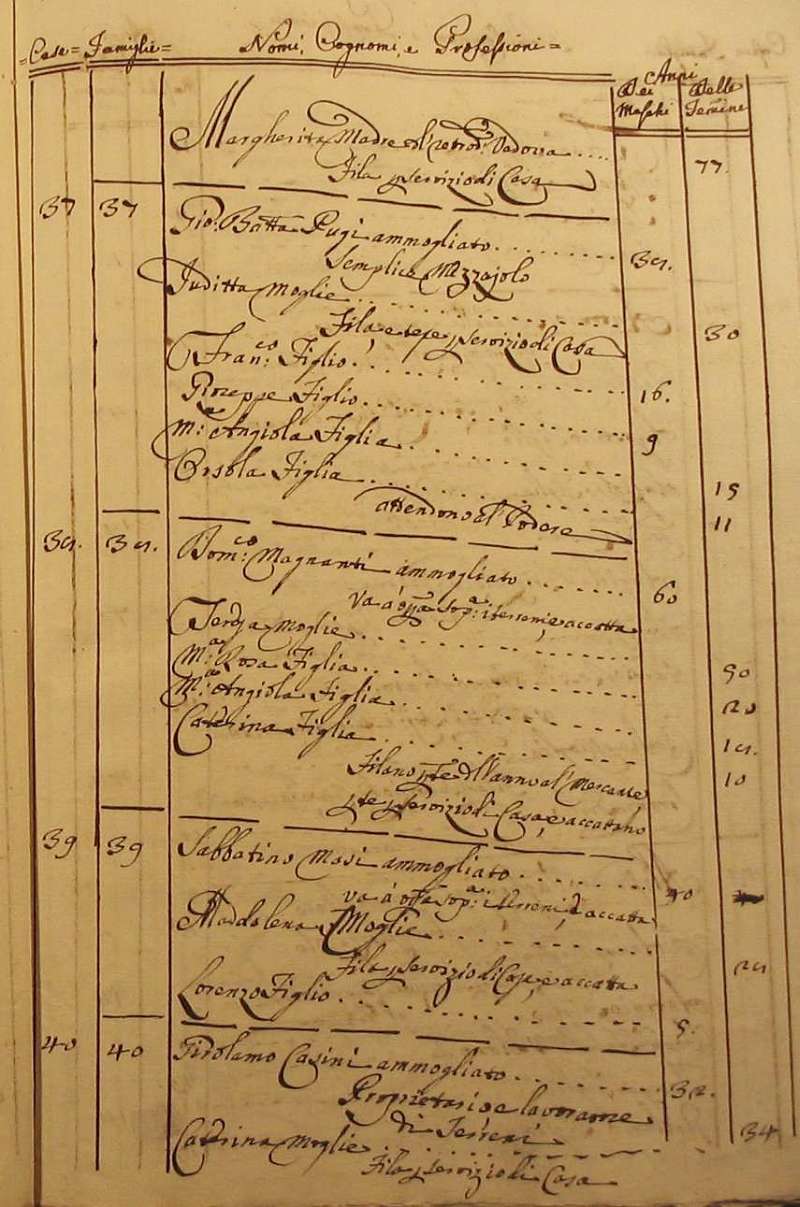 = Case = Famiglie = Nomi, Cognomi, e Professioni =
Anni
Dei Maschi Delle Femine
Margherita Madre del retrod.º Vedova ..... 77.
Fila p servizio di Casa
37 37 Gio: Batta Pugi ammogliato ........ 38.
Semplice Mezzajolo
Juditta Moglie ........ 30
Fila, e tesse p servizio di Casa
Fran:co Figlio ........ 16.
Giuseppe Figlio ........ 9
M:a Angiola Figlia ........ 15
Orsola Figlia ........ 11
attendono al Podere
38. 38. Dom:co Magnanti ammogliato ....... 60
va à opra sop:a i terreni, e accatta
Teresa Moglie ........ 50
M:a Rosa Figlia ........ 20
M:a Angiola Figlia ........ 18.
Caterina Figlia ........ 10
Filano pte dell'anno al Mercante
pte p servizio di Casa, e accattano
39 39 Sabbatino Masi ammogliato ....... 40
va à opra sop:a i terreni, e accatta
Maddalena Moglie ........ 28
Fila p servizio di Casa, e accatta
Lorenzo Figlio ........ 5.
40 40 Girolamo Casini ammogliato ....... 32.
Proprietario e lavorante
di Terreni
Caterina Moglie ........ 34
Fila p servizio di Casa